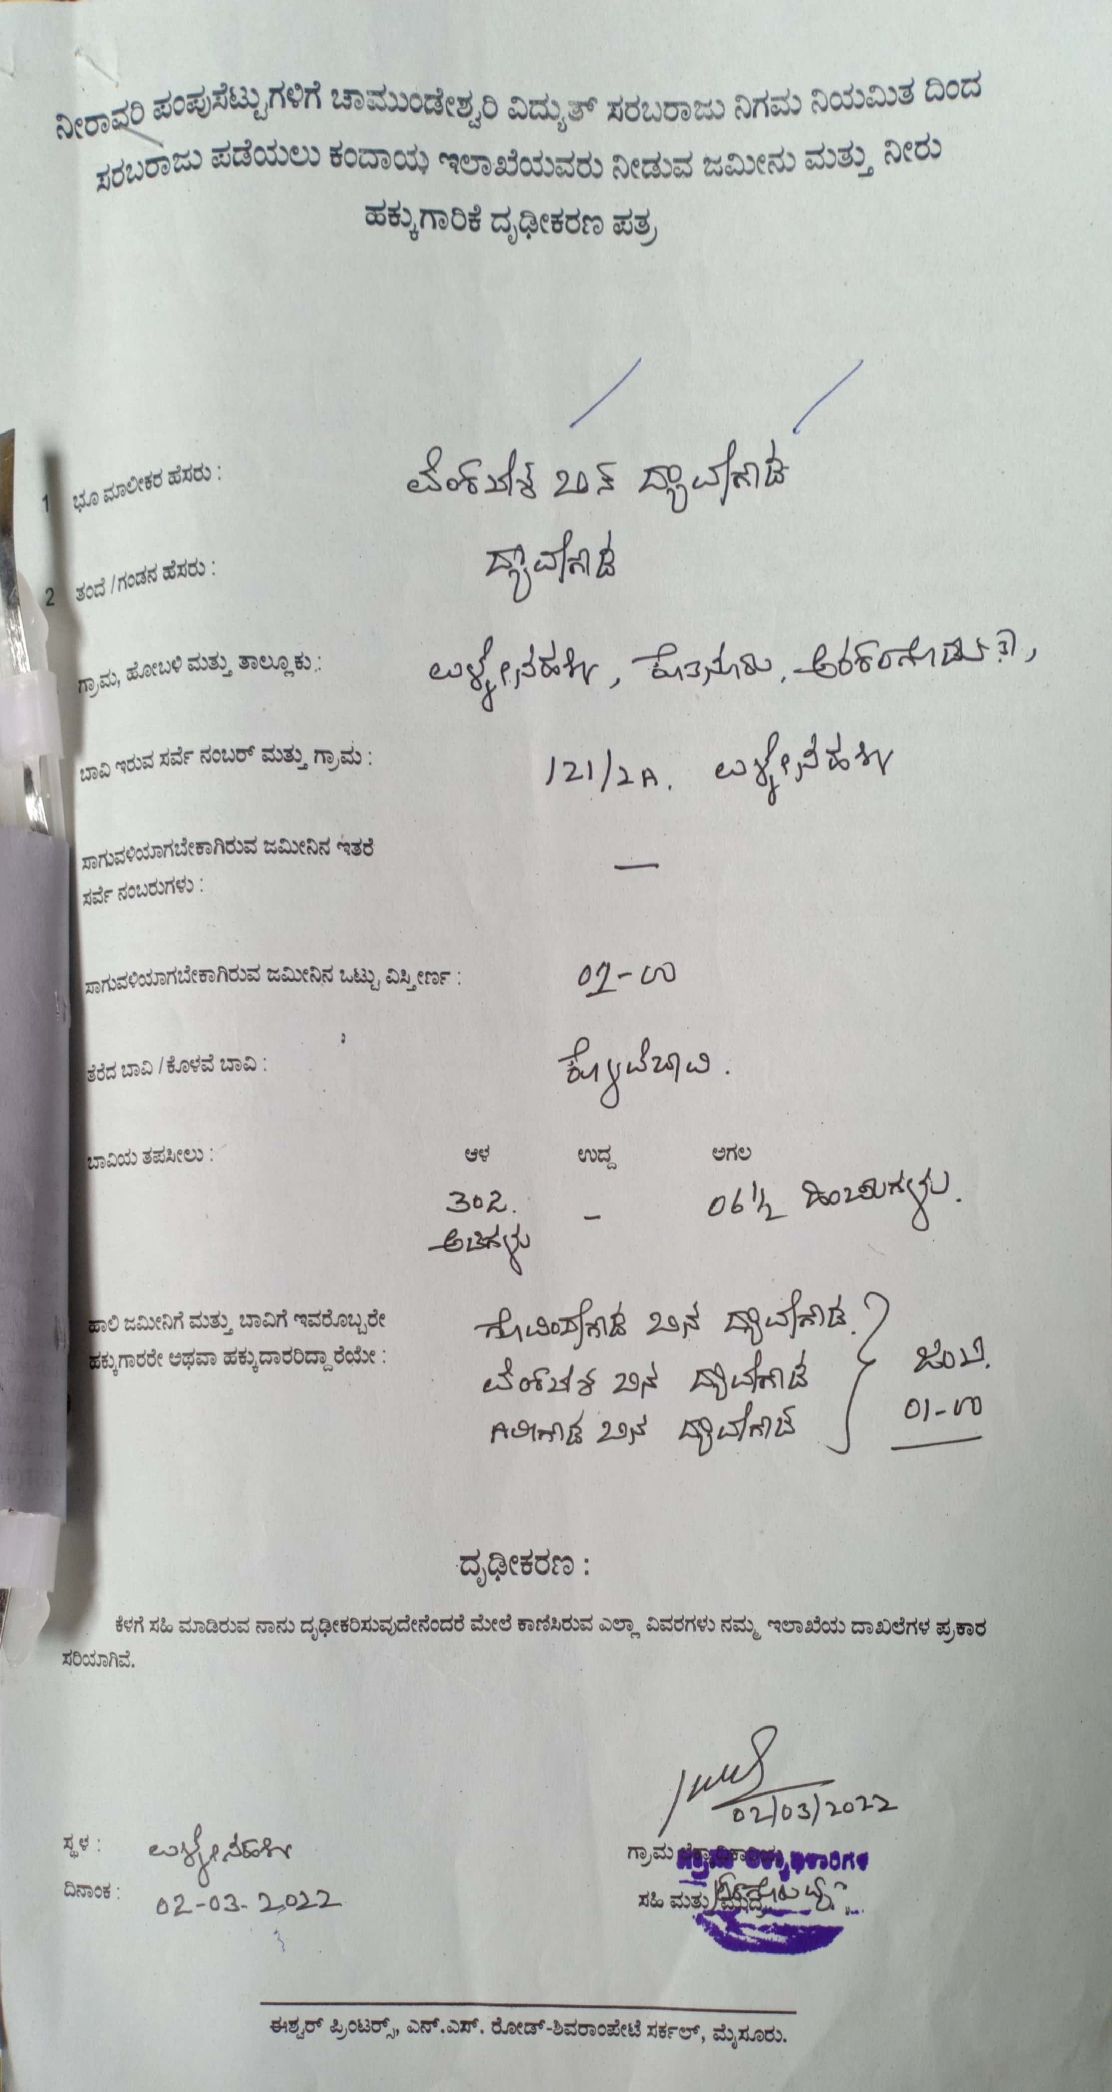 ನೀರಾವರಿ ಪಂಪುಸೆಟ್ಟುಗಳಿಗೆ ಚಾಮುಂಡೇಶ್ವರಿ ವಿದ್ಯುತ್ ಸರಬರಾಜು ನಿಗಮ ನಿಯಮಿತ ದಿಂದ
ಸರಬರಾಜು ಪಡೆಯಲು ಕಂದಾಯ ಇಲಾಖೆಯವರು ನೀಡುವ ಜಮೀನು ಮತ್ತು ನೀರು
ಹಕ್ಕುಗಾರಿಕೆ ದೃಢೀಕರಣ ಪತ್ರ
1 ಭೂ ಮಾಲೀಕರ ಹೆಸರು : ವೆಂಕಟೇಶ ಬಿನ್ ದ್ಯಾವೇಗೌಡ
2 ತಂದೆ / ಗಂಡನ ಹೆಸರು : ದ್ಯಾವೇಗೌಡ
ಗ್ರಾಮ, ಹೋಬಳಿ ಮತ್ತು ತಾಲ್ಲೂಕು :
ಬಾವಿ ಇರುವ ಸರ್ವೆ ನಂಬರ್ ಮತ್ತು ಗ್ರಾಮ : 121/2A.
ಸಾಗುವಳಿಯಾಗಬೇಕಾಗಿರುವ ಜಮೀನಿನ ಇತರೆ —
ಸರ್ವೆ ನಂಬರುಗಳು :
ಸಾಗುವಳಿಯಾಗಬೇಕಾಗಿರುವ ಜಮೀನಿನ ಒಟ್ಟು ವಿಸ್ತೀರ್ಣ :
ತೆರೆದ ಬಾವಿ / ಕೊಳವೆ ಬಾವಿ : ಕೊಳವೆಬಾವಿ.
ಬಾವಿಯ ತಪಸೀಲು : ಆಳ ಉದ್ದ ಅಗಲ
302. – 06 1/2 ಇಂಚುಗಳು.
ಅಡಿಗಳು
ಹಾಲಿ ಜಮೀನಿಗೆ ಮತ್ತು ಬಾವಿಗೆ ಇವರೊಬ್ಬರೇ ಗೋವಿಂದೇಗೌಡ ಬಿನ್ ದ್ಯಾವೇಗೌಡ.
ಹಕ್ಕುಗಾರರೇ ಅಥವಾ ಹಕ್ಕುದಾರರಿದ್ದಾರೆಯೇ : ವೆಂಕಟೇಶ ಬಿನ್ ದ್ಯಾವೇಗೌಡ ಜಂಟಿ.
ಬಿನ್ ದ್ಯಾವೇಗೌಡ
ದೃಢೀಕರಣ :
ಕೆಳಗೆ ಸಹಿ ಮಾಡಿರುವ ನಾನು ದೃಢೀಕರಿಸುವುದೇನೆಂದರೆ ಮೇಲೆ ಕಾಣಿಸಿರುವ ಎಲ್ಲಾ ವಿವರಗಳು ನಮ್ಮ ಇಲಾಖೆಯ ದಾಖಲೆಗಳ ಪ್ರಕಾರ
ಸರಿಯಾಗಿವೆ.
02/03/2022
ಸ್ಥಳ :
ಗ್ರಾಮ
ದಿನಾಂಕ : 02-03-2022
ಸಹಿ ಮತ್ತು ಮುದ್ರೆ
ಈಶ್ವರ್ ಪ್ರಿಂಟರ್ಸ್, ಎನ್.ಎಸ್. ರೋಡ್-ಶಿವರಾಂಪೇಟೆ ಸರ್ಕಲ್, ಮೈಸೂರು.